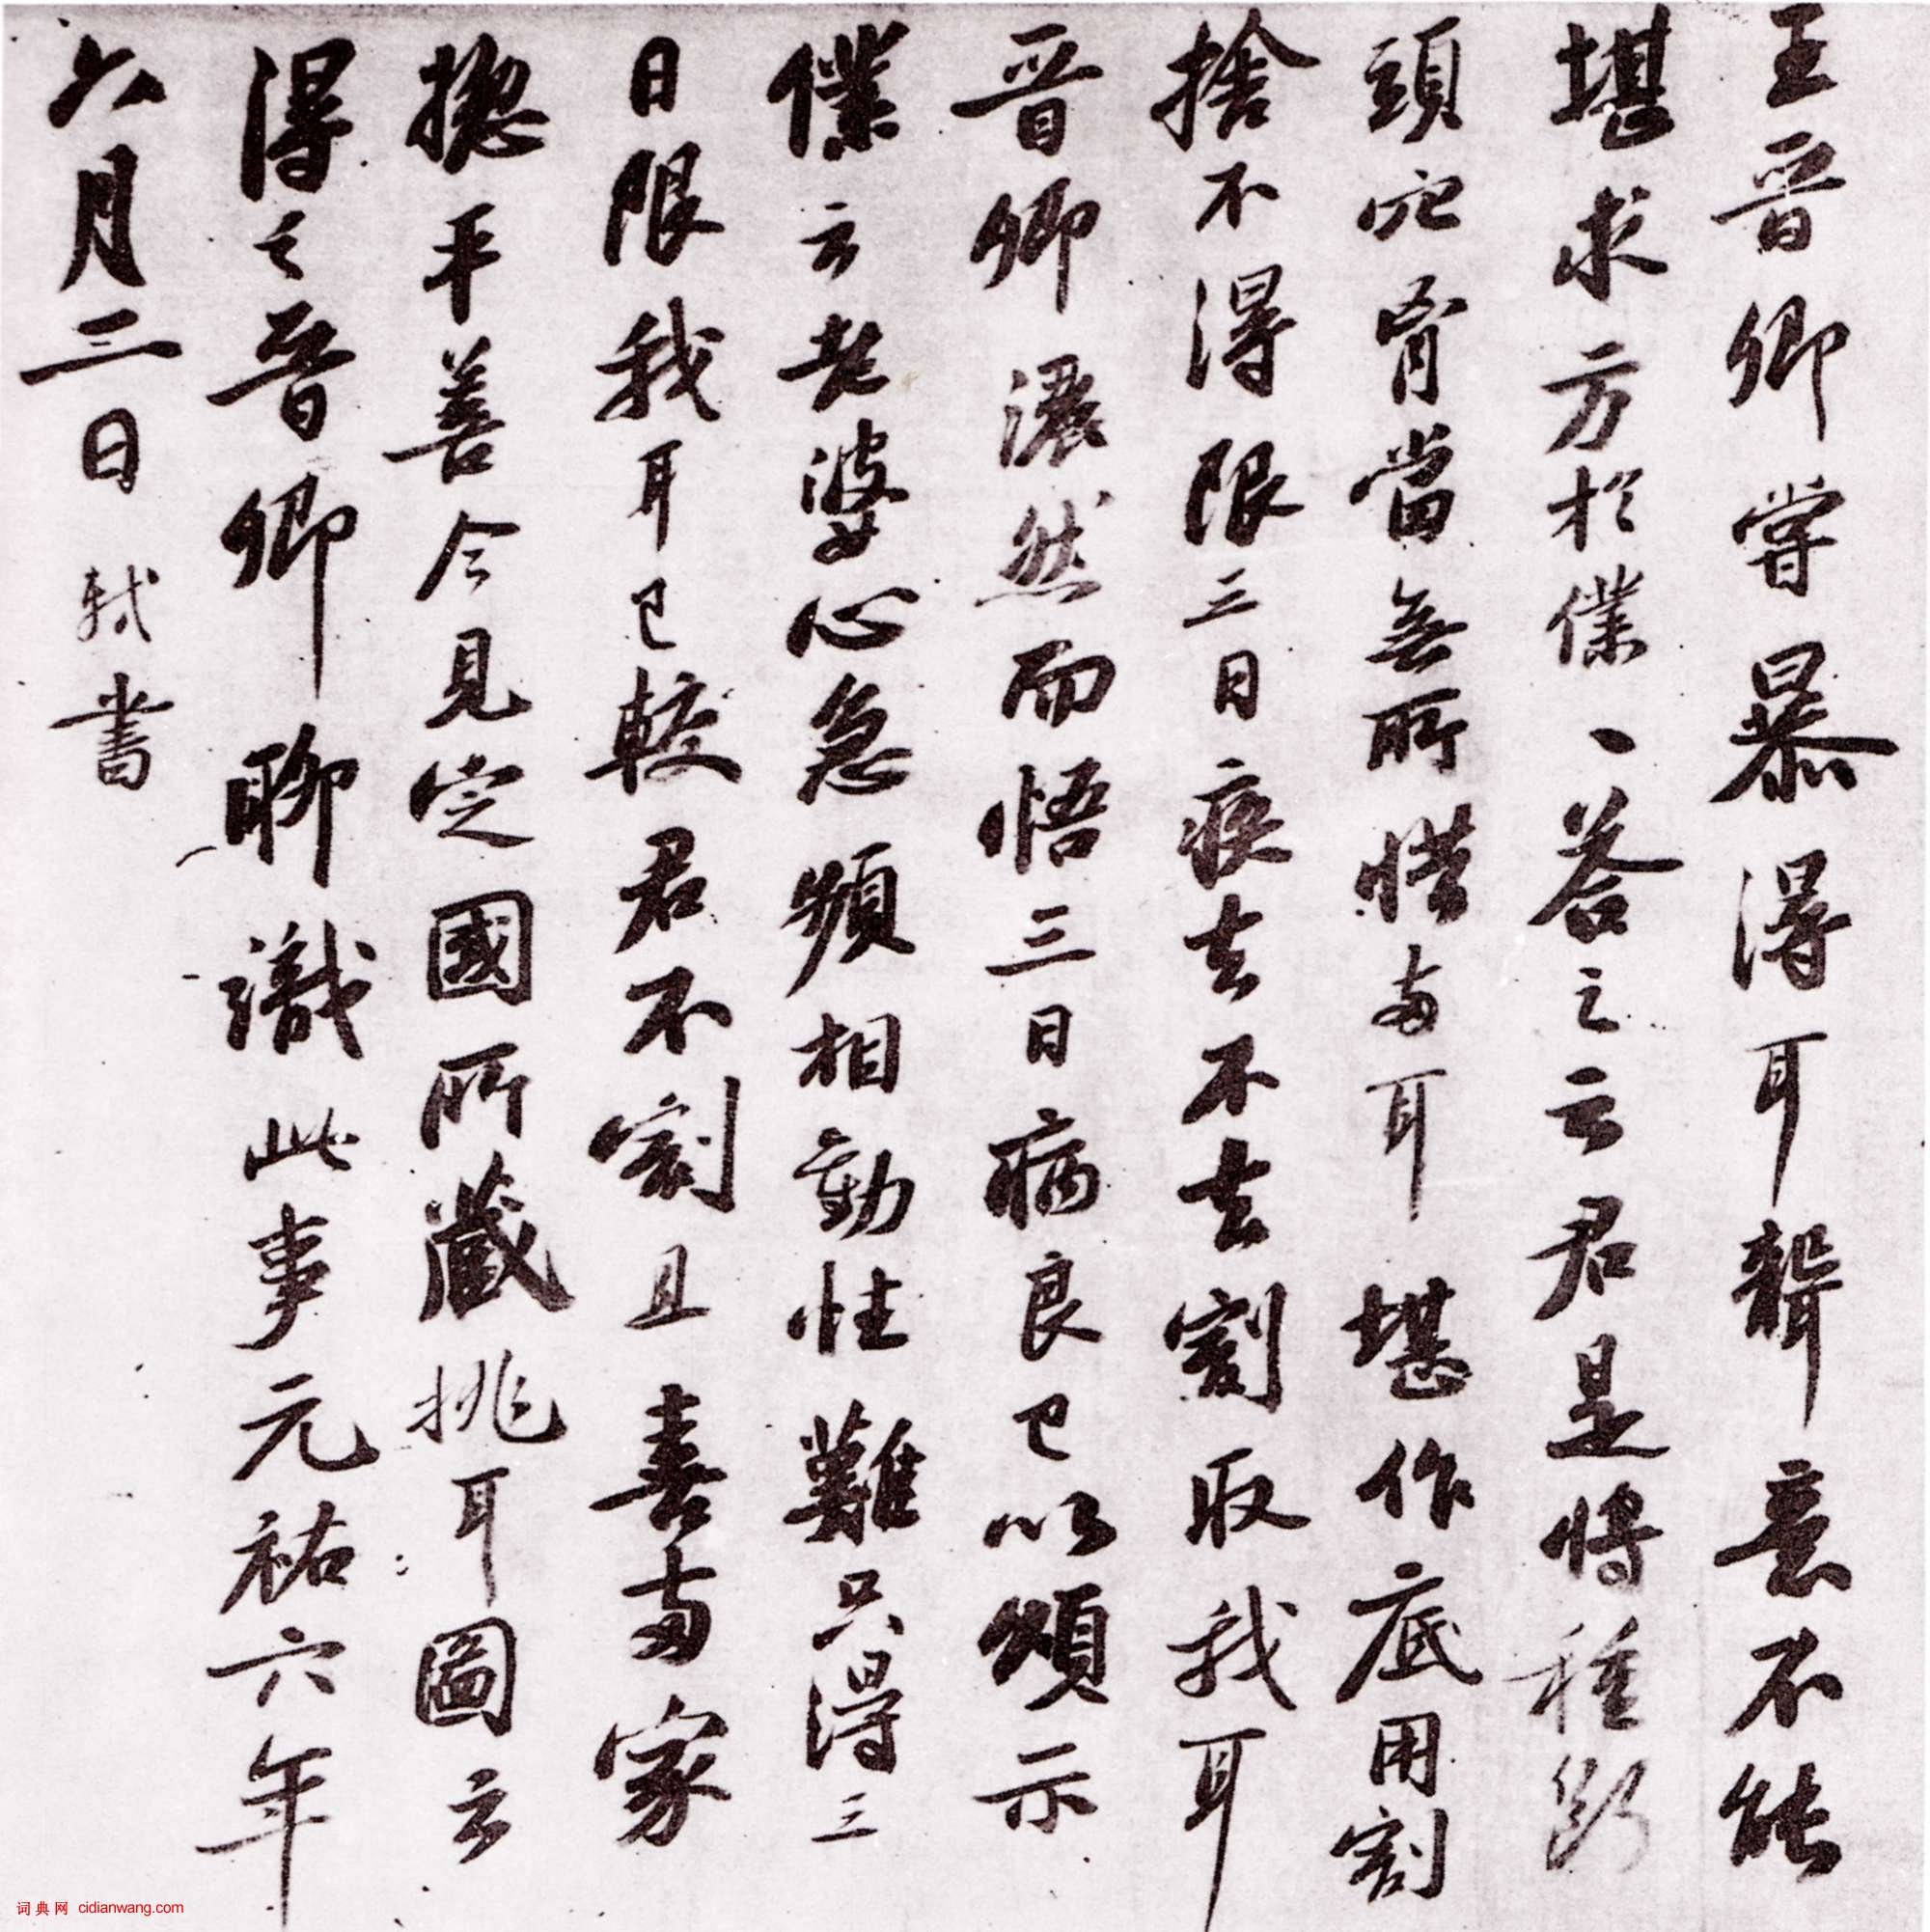 王晉卿嘗暴得耳聾意不能
堪求方於僕、答之云君是將種斷
頭穴胷當無所惜兩耳堪作底用割
捨不得限三日疾去不去割取我耳
晉卿灑然而悟三日病良已以頌示
僕云老婆心急頻相勸性難只得三
日限我耳已較君不割且喜兩家
揔平善今見定國所藏挑耳圖云
得之晉卿聊識此事元祐六年
六月二日軾書
词典网 cidianwang.com